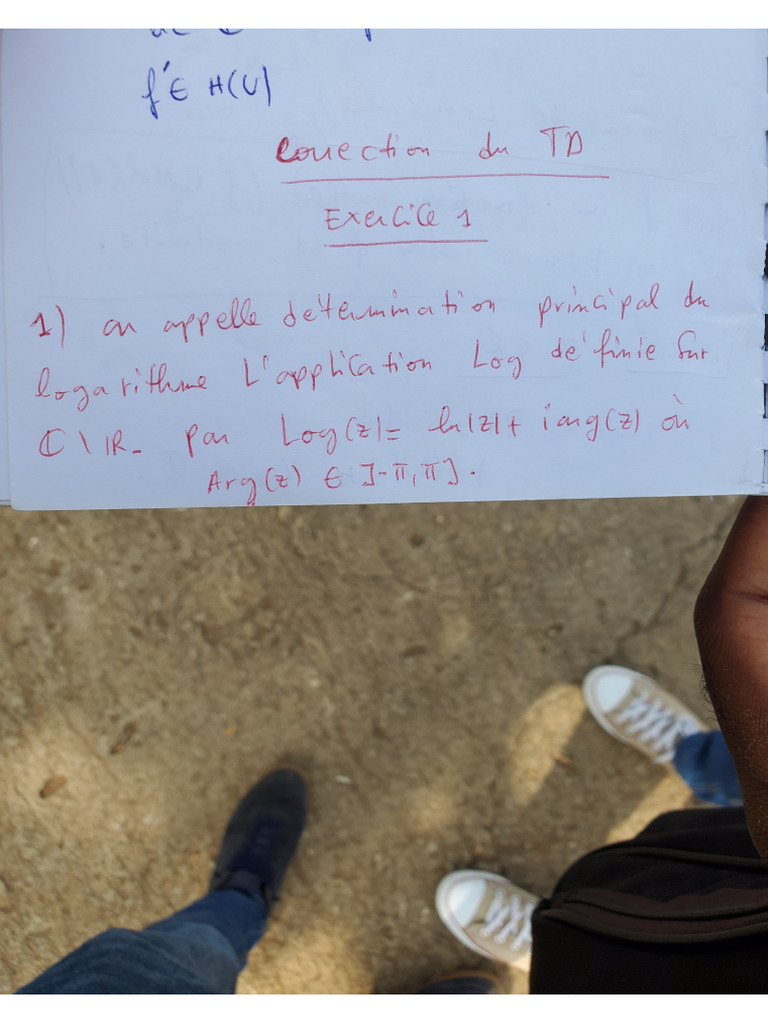 f'∈ H(U)
Correction du TD
Exercice 1
1) on appelle détermination principal du
logarithme L'application Log définie sur
ℂ \ ℝ₋ par Log(z) = ln|z| + i arg(z) où
Arg(z) ∈ ]-π, π].